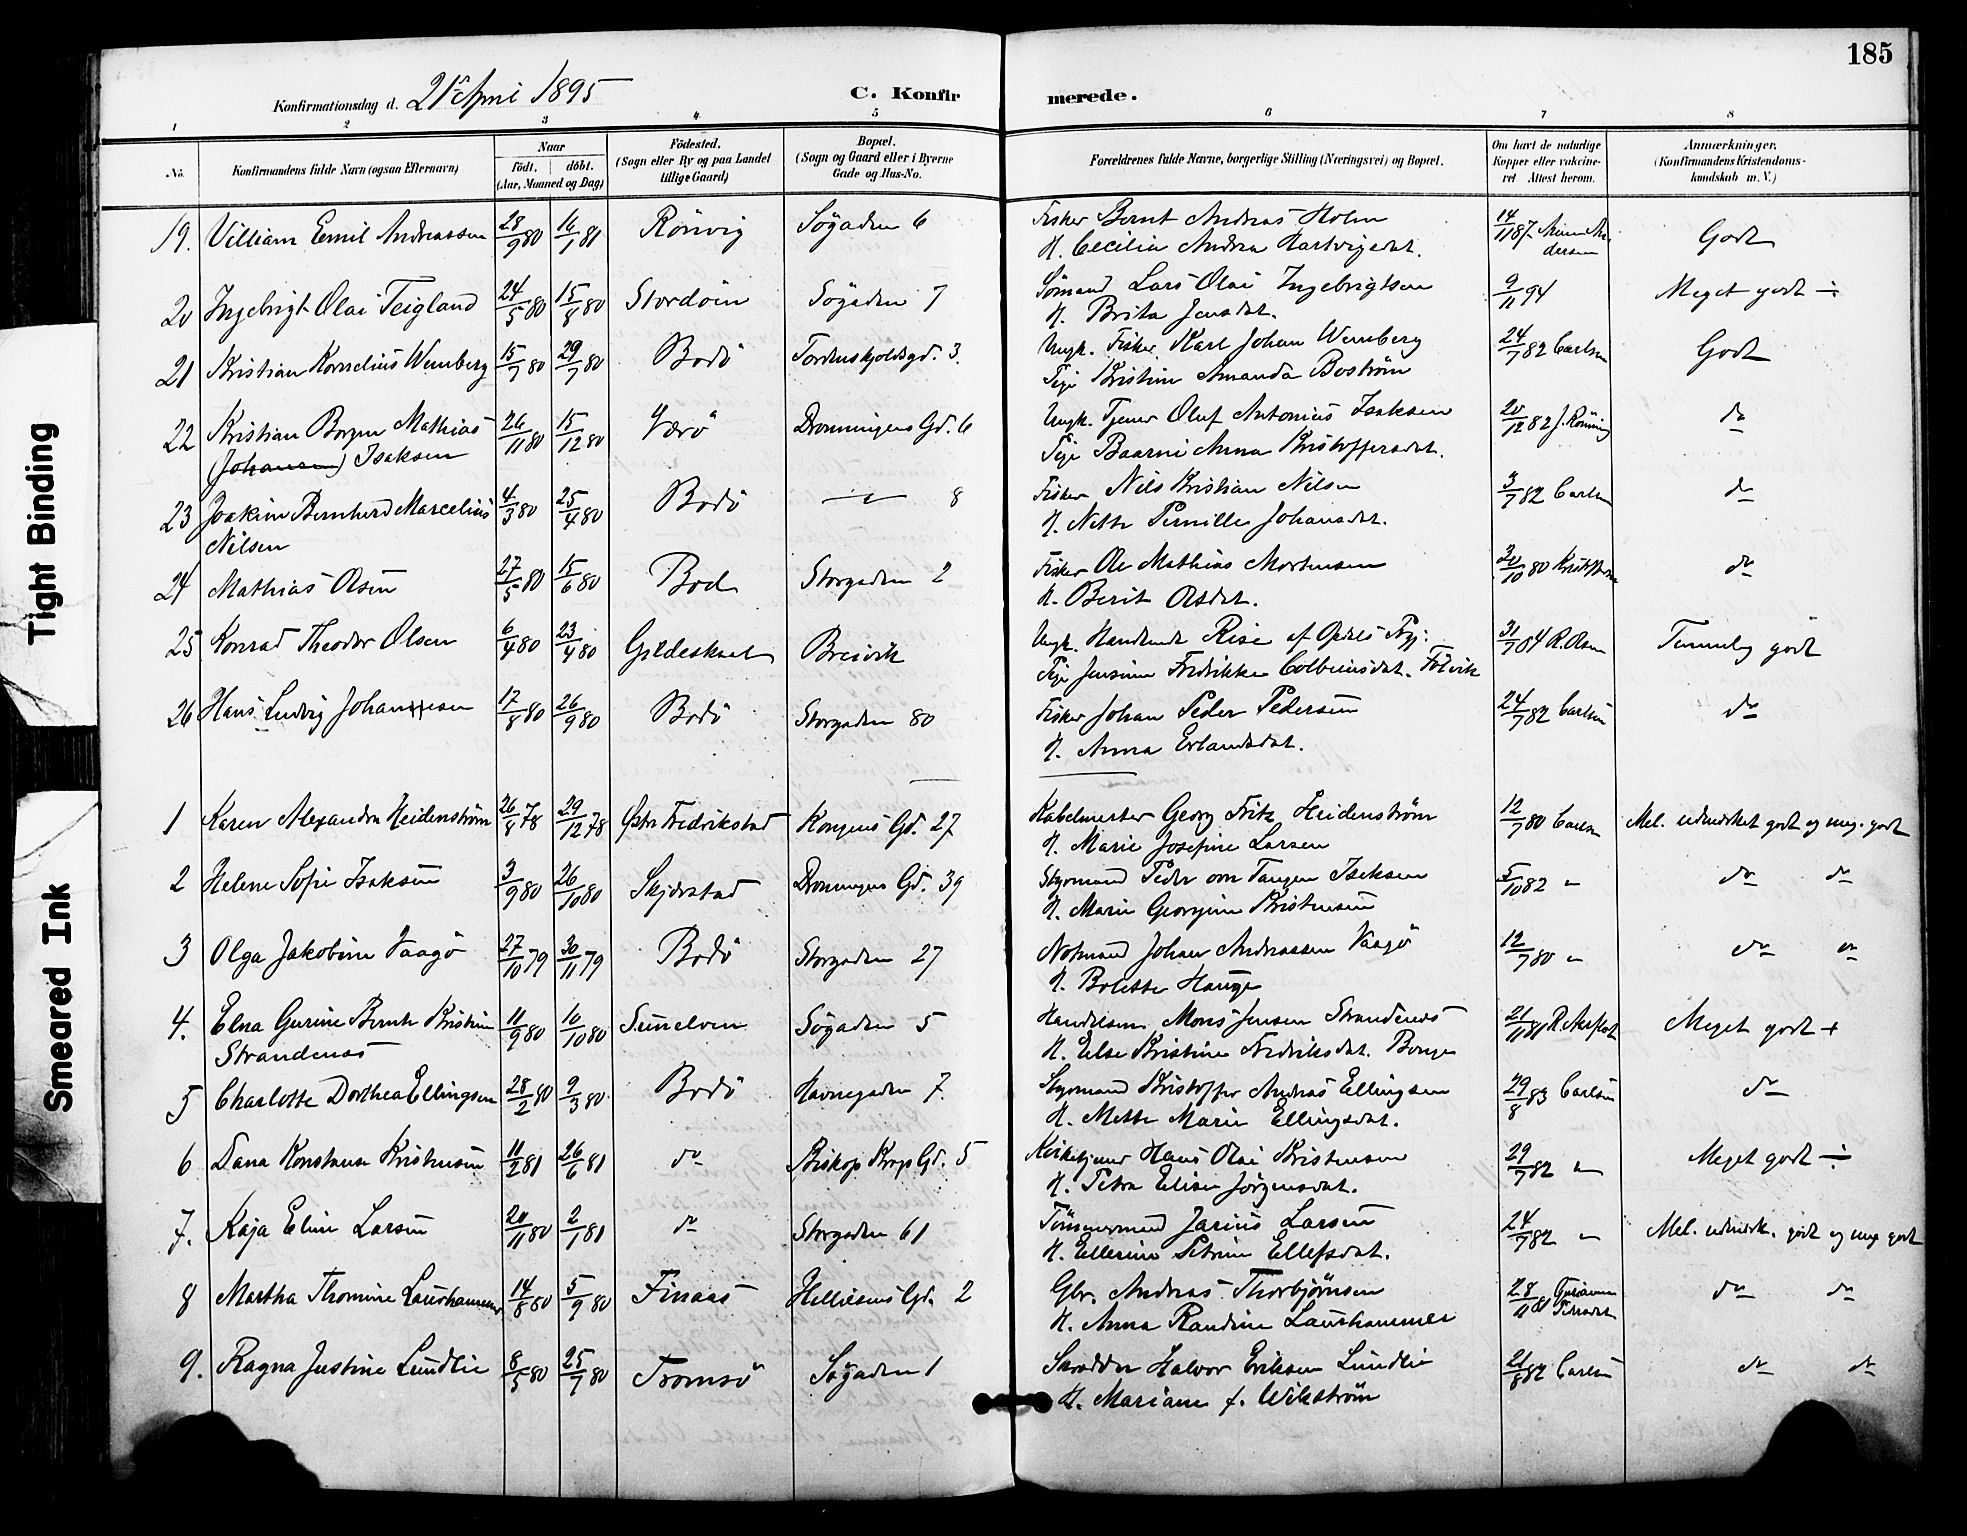 185
Konfirmationsdag d. 21de April 1895
C. Konfirmerede.
1 2 3 4 5 6 7 8
No.
Konfirmandens fulde Navn (ogsaa Efternavn)
Naar
født. døbt.
(Aar, Maaned og Dag)
Fødested.
(Sogn eller By og paa Landet
tillige Gaard)
Bopæl.
(Sogn og Gaard eller i Byerne
Gade og Hus-No.
Forældrenes fulde Navne, borgerlige Stilling (Næringsvei) og Bopæl.
Om havt de naturlige
Kopper eller vakcine-
ret Attest herom.
Anmærkninger.
(Konfirmandens Kristendoms-
kundskab m. V.)
19. Villiam Emil Andreassen 28/9 80 16/1 81 Rönvig Søgaden 6 Fisker Bernt Andreas Holm 14/11 87 Godt
H. Cecilia Andrea Hartvigsdat.
20 Ingebrigt Olai Teigland 24/5 80 15/8 80 Stordöen Søgaden 7 Sømand Lars Olai Ingebrigtsen 9/11 94 Meget godt ÷
H. Brita Jensdat.
21 Kristian Kornelius Wemberg 15/7 80 29/7 80 Bodö Tordenskjoldsgd. 3. Ungk. Fisker Karl Johan Wemberg 24/7 82 Carlsen Godt
Pige Kristine Amanda Boström
22 Kristian Borgen Mathias 26/11 80 15/12 80 Værö Dronningens Gd. 6 Ungk. Tjener Oluf Antonius Isaksen 20/12 82 J. Rönning do
(Johansen) Isaksen Pige Baarni Anna Kristoffersdat.
23 Joakim Bernherd Marcelius 4/3 80 25/4 80 Bodö — " — 8 Fisker Nils Kristian Nilsen 3/7 82 Carlsen do
Nilsen H. Netta Pernille Johansdat.
24 Mathias Olsen 27/5 80 15/6 80 Bod Storgaden 2 Fisker Ole Mathias Mortensen 30/10 80 do
H. Berit Olsdat.
25 Konrad Theodor Olsen 6/4 80 23/4 80 Gildeskaal Breivik Ungk. Handlende Rise af 31/7 84 R. Olsen Temmelig godt
Pige Jensine Fredrikke Colbeinsdat. Fölvik
26 Hans Ludvig Johannesen 17/8 80 26/9 80 Bodö Storgaden 80 Fisker Johan Peder Pedersen 24/7 82 Carlsen do
H. Anna Erlandsdat.
1 Karen Alexandra Heidenström 26/8 78 29/12 78 Østre Fredrikstad Kongens Gd. 27 Kabelmester Georg Fritz Heidenström 12/7 80 Carlsen Mel. udmærket godt og meg. godt
H. Marie Josefine Larsen
2 Helene Sofie Isaksen 3/9 80 26/10 80 Skjerstad Dronningens Gd. 39 Styrmand Peder von Tangen Isaksen 5/10 82 " do do
H. Marie Georgine Kristensen
3 Olga Jakobine Vaagö 27/10 79 30/11 79 Bodö Storgaden 27 Notmand Johan Andreassen Vaagö 12/7 80 " do do
H. Bolette Hauge
4. Elna Gurine Bernte Kristine 11/9 80 10/10 80 Sunelven Søgaden 5 Handelsm. Mons Jensen Strandenæs 21/11 81 Meget godt +
Strandenæs H. Else Kristine Fredriksdat. Bonge
5 Charlotte Dorthea Ellingsen 28/2 80 9/3 80 Bodö Havnegaden 7. Styrmand Kristoffer Andreas Ellingsen 29/8 83 Carlsen do
H. Mette Marie Ellingsdat.
6 Dana Konstanse Kristensen 11/2 81 26/6 81 do Biskop Krogs Gd. 5 Kirketjener Hans Olai Kristensen 29/7 82 " Meget godt ÷
H. Petra Elise Jörgensdat.
7. Kaja Eline Larsen 20/11 80 2/1 81 do Storgaden 61 Tömmermand Jarius Larsen 24/7 82 " Mel. udmærk. godt og meg. godt
H. Ellerine Petrine Ellefsdat.
8 Martha Thomine Laushammer 14/8 80 5/9 80 Finaas Hellisens Gd. 2 Gbr. Andreas Thorbjørnsen 28/11 81 do do
H. Anna Randine Laushammer
9. Ragna Justine Lundlie 8/5 80 25/7 80 Tromsö Søgaden 1 Halvor Eriksen Lundlie 21/8 82 Carlsen do do
H. Mariane f. Wikström
Tight Binding
Smeared Ink